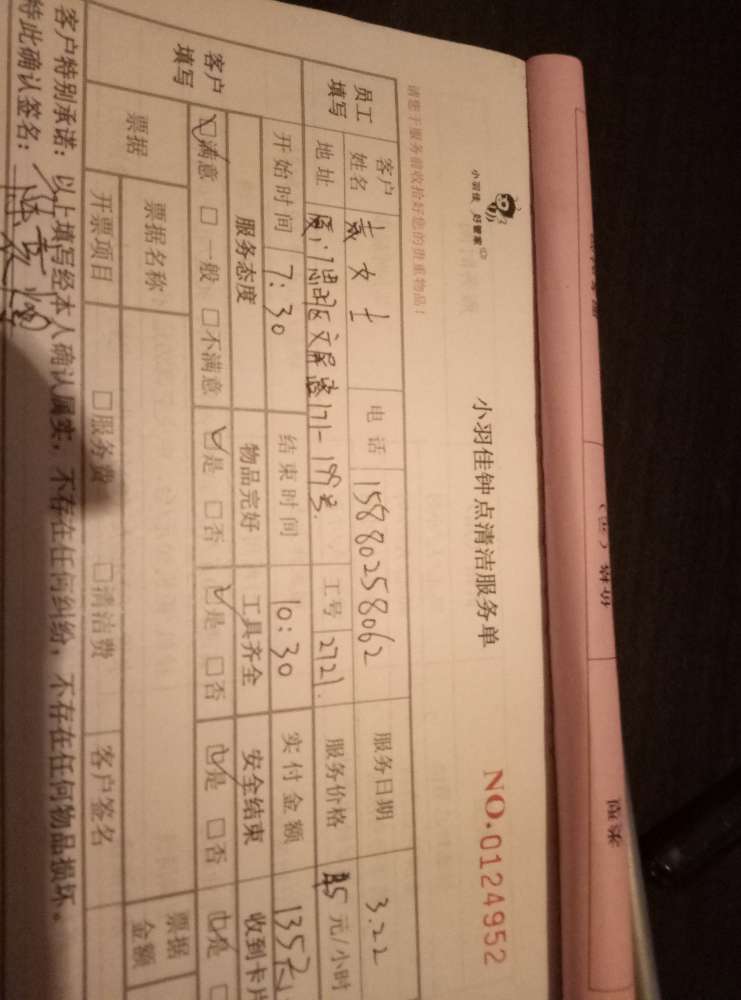 小羽佳 好管家
小羽佳钟点清洁服务单
NO.0124952
请您于服务前收拾好您的贵重物品！
员工填写
客户姓名 女士 电话 15880258062 服务日期 3.22
地址 171-199号. 工号 2721. 服务价格 45 元/小时
开始时间 7:30 结束时间 10:30 实付金额 135元
客户填写
服务态度 物品完好 工具齐全 安全结束 收到卡片
☑满意 □一般 □不满意 ☑是 □否 ☑是 □否 ☑是 □否 ☑是 □
票据 票据名称: 票据金额
开票项目 □服务费 □清洁费 客户签名
客户特别承诺：以上填写经本人确认属实，不存在任何纠纷，不存在任何物品损坏。
特此确认签名：